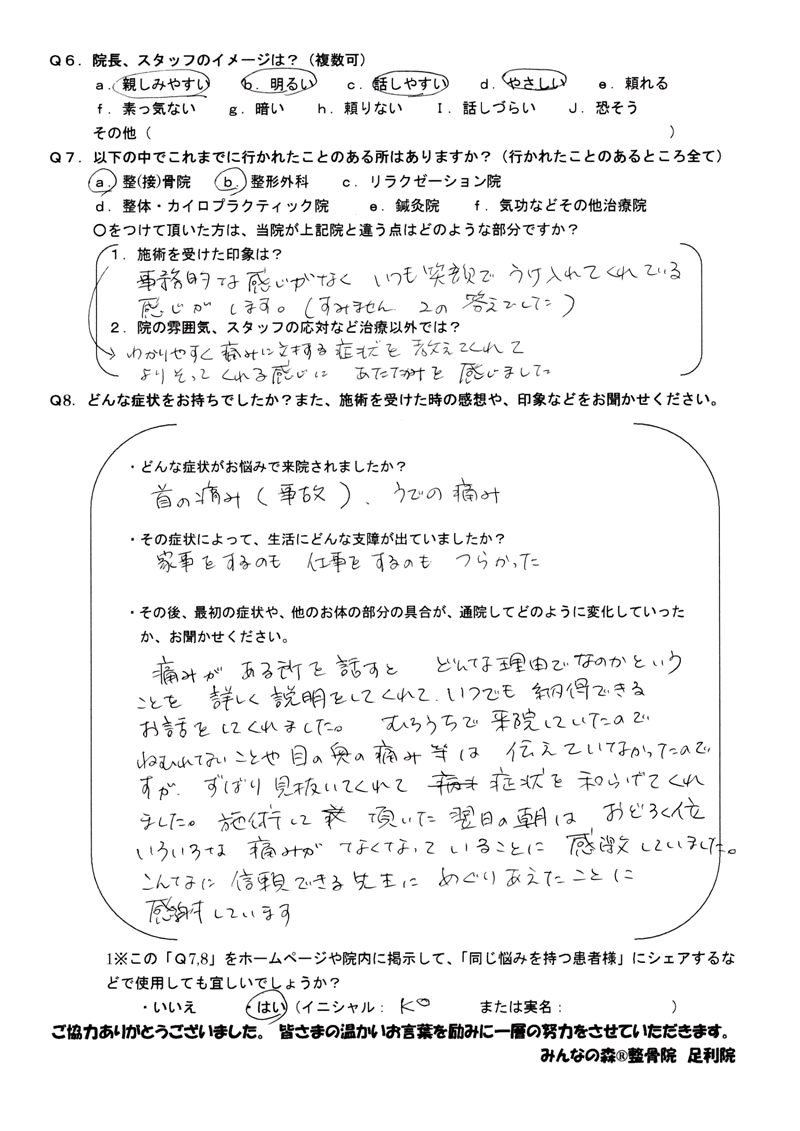 Q6．院長、スタッフのイメージは？（複数可）
a．親しみやすい　b．明るい　c．話しやすい　d．やさしい　e．頼れる
f．素っ気ない　g．暗い　h．頼りない　I．話しづらい　J．恐そう
その他（　　　）
Q7．以下の中でこれまでに行かれたことのある所はありますか？（行かれたことのあるところ全て）
a．整(接)骨院　b．整形外科　c．リラクゼーション院
d．整体・カイロプラクティック院　e．鍼灸院　f．気功などその他治療院
〇をつけて頂いた方は、当院が上記院と違う点はどのような部分ですか？
1．施術を受けた印象は？
事務的な感じがなく いつも笑顔で うけ入れてくれている
感じが します。（すみません 2の 答えでした）
2．院の雰囲気、スタッフの応対など治療以外では？
わかりやすく 痛みに対する 症状を 教えてくれて
よりそって くれる感じに あたたかみを 感じました
Q8．どんな症状をお持ちでしたか？また、施術を受けた時の感想や、印象などをお聞かせください。
・どんな症状がお悩みで来院されましたか？
首の痛み（事故）、うでの 痛み
・その症状によって、生活にどんな支障が出ていましたか？
家事をするのも 仕事をするのも つらかった
・その後、最初の症状や、他のお体の部分の具合が、通院してどのように変化していった
か、お聞かせください。
痛みが ある所を 話すと どんな理由でなのかという
ことを 詳しく 説明をしてくれて、いつでも 納得できる
お話をしてくれました。 むちうちで 来院していたので
ねむれてないことや 目の奥の痛み等は 伝えていなかったので
すが、ずばり 見抜いてくれて 症状を 和らげてくれ
ました。施術して 頂いた 翌日の朝は おどろく位
いろいろな 痛みが なくなって いることに 感激していました。
こんなに 信頼できる先生に めぐりあえたことに
感謝しています
1※この「Q7,8」をホームページや院内に掲示して、「同じ悩みを持つ患者様」にシェアするな
どで使用しても宜しいでしょうか？
・いいえ　・はい（イニシャル： K　または実名：　　）
ご協力ありがとうございました。 皆さまの温かいお言葉を励みに一層の努力をさせていただきます。
みんなの森®整骨院　足利院